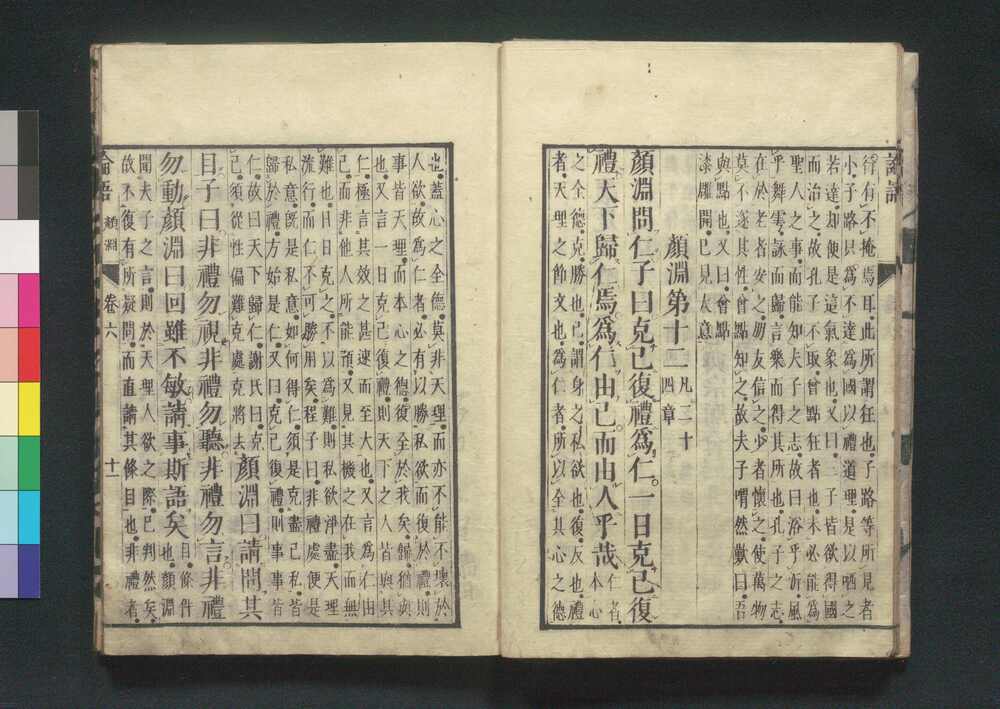 論語
行有不掩焉耳此所謂狂也子路等所見者
小子路只為不達為國以禮道理是以哂之
若達却便是這氣象也又曰三子皆欲得國
而治之故孔子不取曾點狂者也未必能為
聖人之事而能知夫子之志故曰浴乎沂風
乎舞雩詠而歸言樂而得其所也孔子之志
在於老者安之朋友信之少者懷之使萬物
莫不遂其性曾點知之故夫子喟然歎曰吾
與點也又曰曾點
漆雕開已見大意
顏淵第十二
凡二十
四章
顏淵問仁子曰克己復禮為仁一日克己復
禮天下歸仁焉為仁由己而由人乎哉
仁者
本心
之全德克勝也己謂身之私欲也復反也禮
者天理之節文也為仁者所以全其心之德
也蓋心之全德莫非天理而亦不能不壞於
人欲故為仁者必有以勝私欲而復於禮則
事皆天理而本心之德復全於我矣歸猶與
也又言一日克己復禮則天下之人皆與其
仁極言其效之甚速而至大也又言為仁由
己而非他人所能預又見其機之在我而無
難也日日克之不以為難則私欲淨盡天理
流行而仁不可勝用矣程子曰非禮處便是
私意既是私意如何得仁須是克盡己私皆
歸於禮方始是仁又曰克己復禮則事事皆
仁故曰天下歸仁謝氏曰克
己須從性偏難克處克將去
顏淵曰請問其
目子曰非禮勿視非禮勿聽非禮勿言非禮
勿動顏淵曰回雖不敏請事斯語矣
目條件
也顏淵
聞夫子之言則於天理人欲之際已判然矣
故不復有所疑問而直請其條目也非禮者
論語 顏淵 卷六 十一